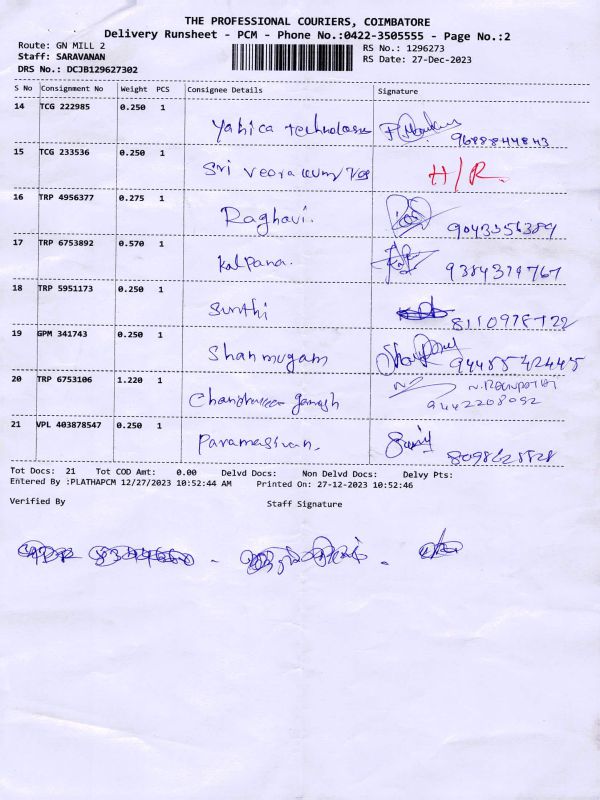 THE PROFESSIONAL COURIERS, COIMBATORE
Delivery Runsheet - PCM - Phone No.:0422-3505555 - Page No.:2
Route: GN MILL 2
RS No.: 1296273
Staff: SARAVANAN
RS Date: 27-Dec-2023
DRS No.: DCJB129627302
S No Consignment No Weight PCS Consignee Details Signature
14 TCG 222985 0.250 1
Yahica technologies
9688844843
15 TCG 233536 0.250 1
Sri
H/R.
16 TRP 4956377 0.275 1
Raghavi.
9043356389
17 TRP 6753892 0.570 1
Kalpana.
9384379767
18 TRP 5951173 0.250 1
Surthi
8110978722
19 GPM 341743 0.250 1
Shanmugam
9448542445
20 TRP 6753106 1.220 1
ganesh
9442208092
21 VPL 403878547 0.250 1
Paramasivan.
Tot Docs: 21 Tot COD Amt: 0.00 Delvd Docs: Non Delvd Docs: Delvy Pts:
Entered By :PLATHAPCM 12/27/2023 10:52:44 AM Printed On: 27-12-2023 10:52:46
Verified By Staff Signature